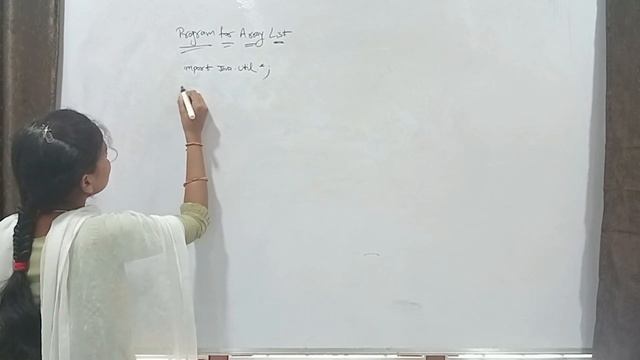 Program for Array List
import Java.util *;